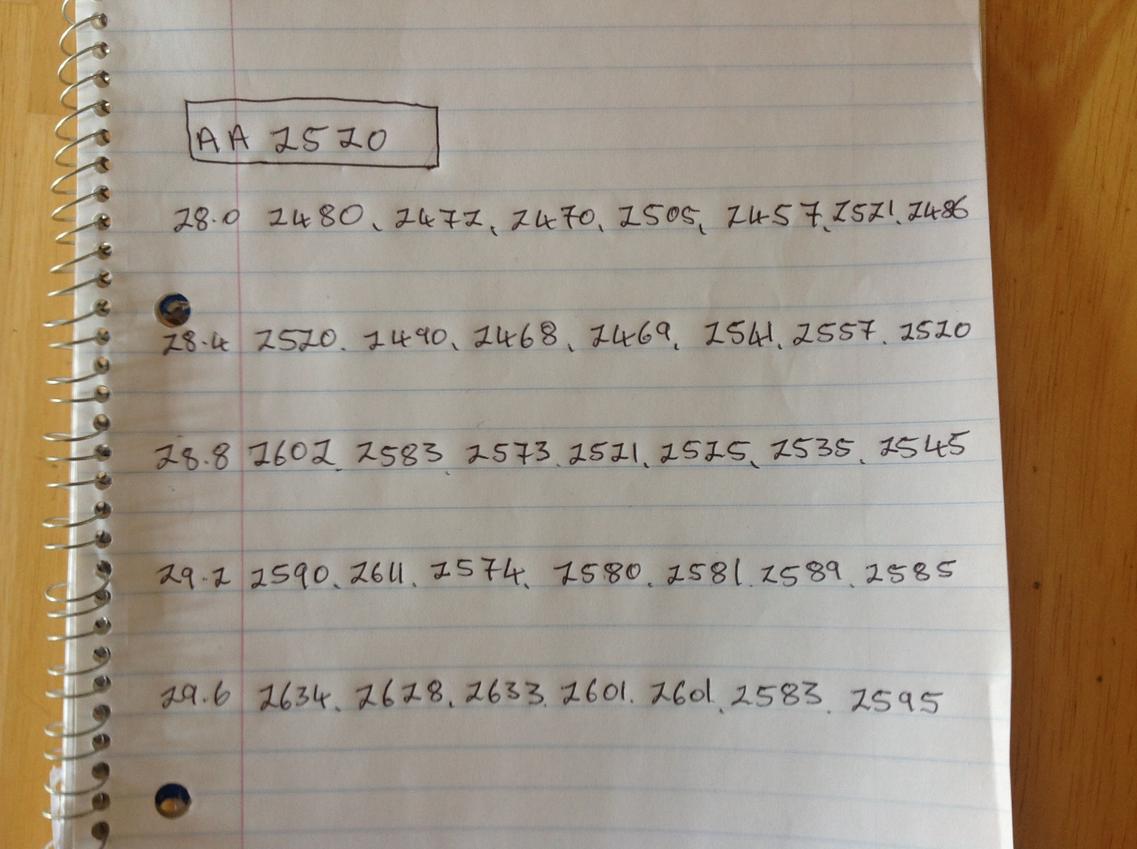 AA 2520
28.0 2480, 2472, 2470, 2505, 2457, 2521, 2486
28.4 2520, 2490, 2468, 2469, 2541, 2557, 2520
28.8 2602, 2583, 2573, 2521, 2525, 2535, 2545
29.2 2590, 2611, 2574, 2580, 2581, 2589, 2585
29.6 2634, 2628, 2633, 2601, 2601, 2583, 2595